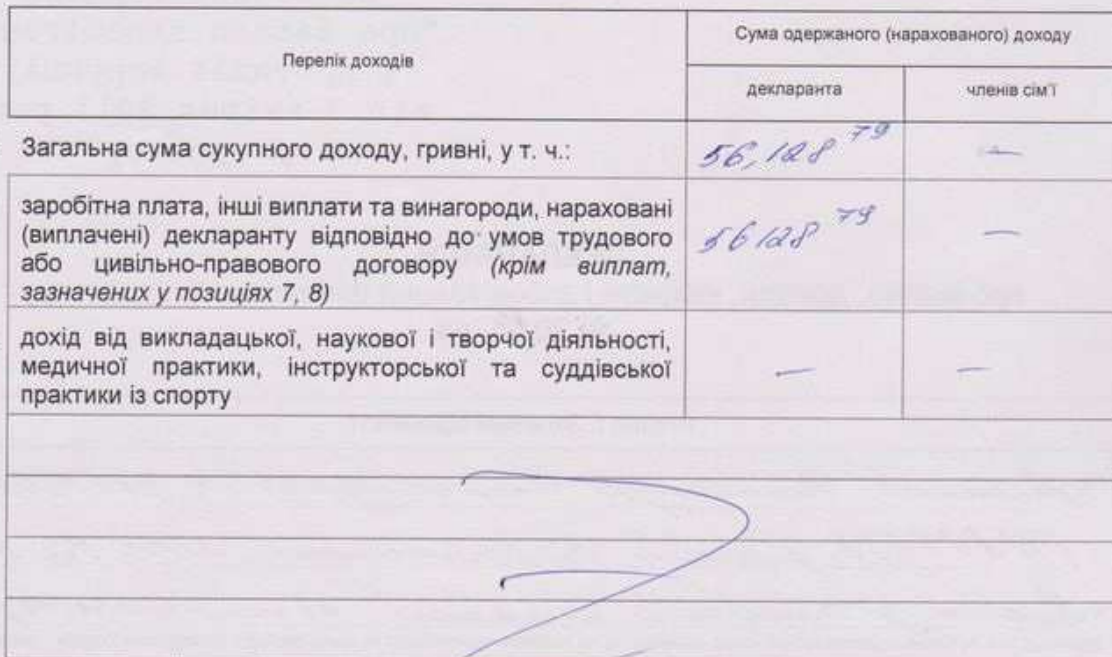 Перелік доходів
Сума одержаного (нарахованого) доходу
декларанта
членів сім'ї
Загальна сума сукупного доходу, гривні, у т. ч.:
56,128 79
—
заробітна плата, інші виплати та винагороди, нараховані
(виплачені) декларанту відповідно до умов трудового
або цивільно-правового договору (крім виплат,
зазначених у позиціях 7, 8)
56128 79
—
дохід від викладацької, наукової і творчої діяльності,
медичної практики, інструкторської та суддівської
практики із спорту
—
—